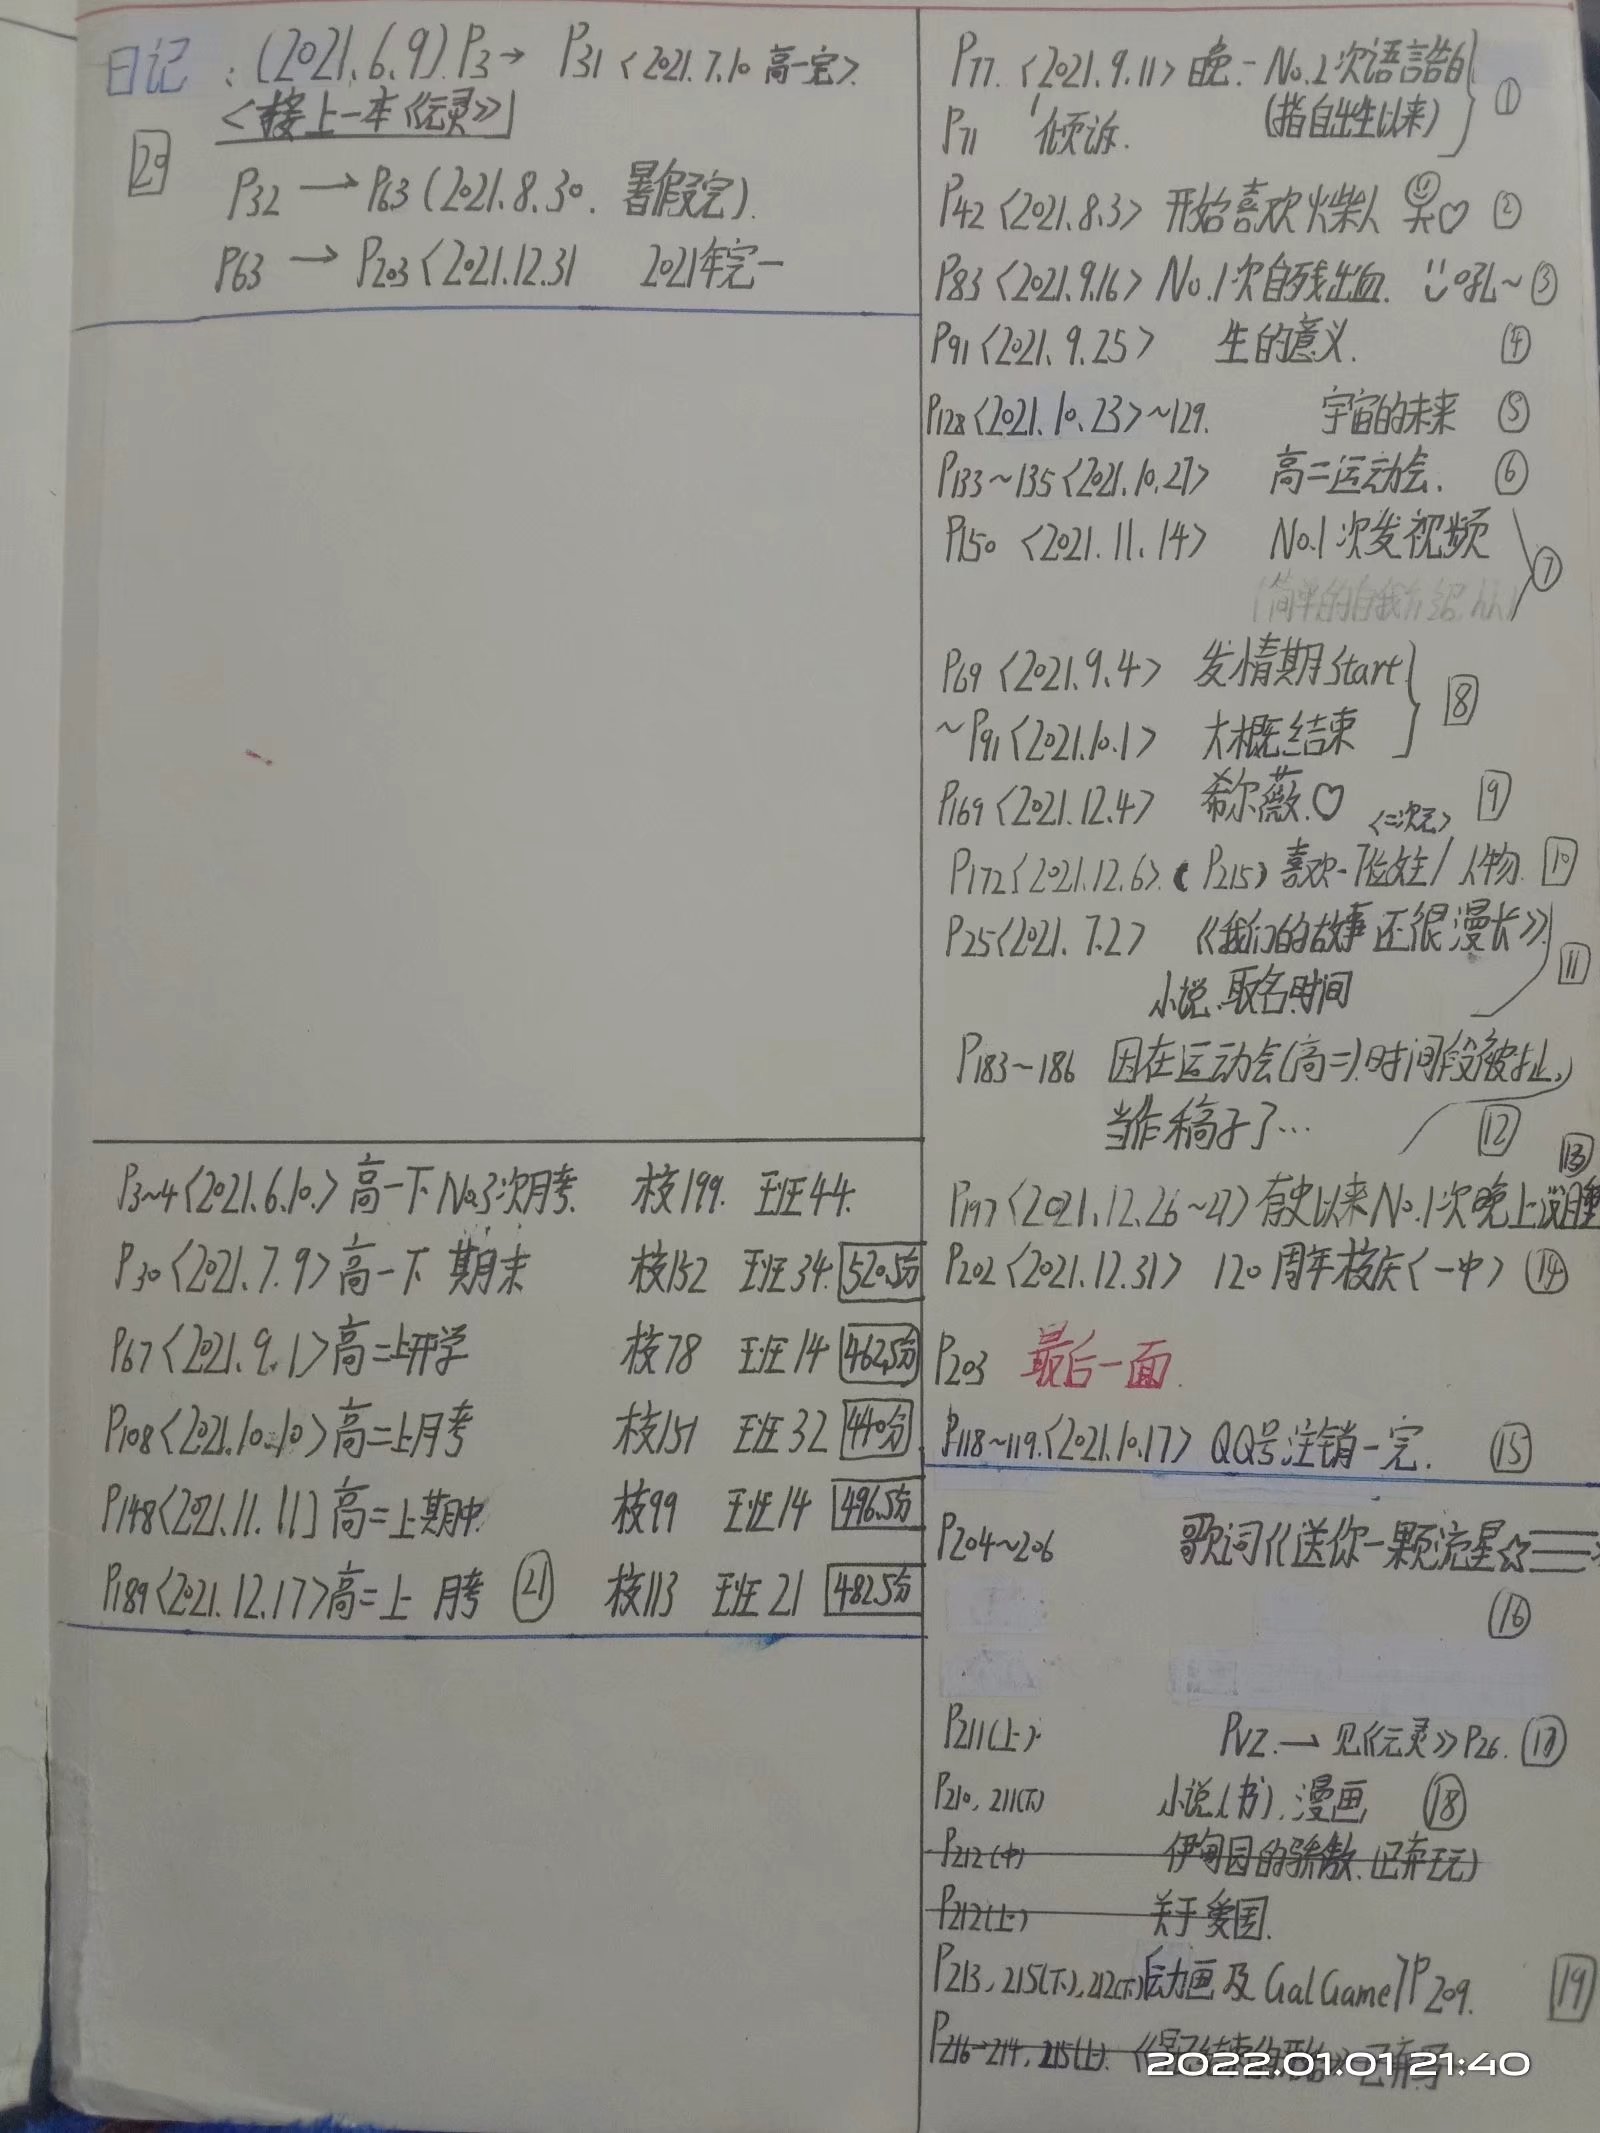 日记：(2021.6.9) P3→ P31<2021.7.10 高一完>.
<接上一本《元灵》>
20
P32 → P63 (2021.8.30. 暑假完).
P63 → P203<2021.12.31 2021年完一
P3~4<2021.6.10.>高一下No.3次月考. 校199. 班44.
P30<2021.7.9>高一下 期末 校152 班34. 520.5分
P67<2021.9.1>高二上开学 校78 班14 462.5分
P108<2021.10.10>高二上月考 校151 班32 440分
P148<2021.11.11]高二上期中. 校99 班14 496.5分
P189<2021.12.17>高二上 月考 ㉑ 校113 班21 482.5分
P77.<2021.9.11>晚.- No.2次语言的 ①
P71 倾诉. (指自出生以来)
P42<2021.8.3> 开始喜欢火柴人 ♡ ②
P83<2021.9.16> No.1次自残出血. ~③
P91<2021.9.25> 生的意义. ④
P128<2021.10.23>~129. 宇宙的未来 ⑤
P133~135<2021.10.27> 高二运动会. ⑥
P150 <2021.11.14> No.1次发视频 ⑦
(简单的自我介绍.hh)
P69<2021.9.4> 发情期Start 8
~P91<2021.10.1> 大概结束
P169<2021.12.4> 希尔薇.♡ 9
<二次元>
P172<2021.12.6>.(P215) 喜欢一位女生/人物. 10
P25<2021.7.2> 《我们的故事还很漫长》 11
小说.取名时间
P183~186 因在运动会(高二).时间段被扯.
当作稿子了… 12
13
P197<2021.12.26~27>有史以来No.1次晚上没睡
P202<2021.12.31> 120周年校庆<一中> ⑭
P203 最后一面.
P118~119.<2021.10.17> QQ号注销一完. ⑮
P204~206 歌词《送你一颗流星☆
⑯
P211(上). PVZ.→ 见《元灵》P26. ⑰
P210, 211(下) 小说(书).漫画 ⑱
P212(中) 伊甸园的骄傲.(已弃坑)
P212(上) 关于爱国.
P213,215(下),212(下)动画及GalGame P209. 19
P216~214, 215(上).
2022.01.01 21:40